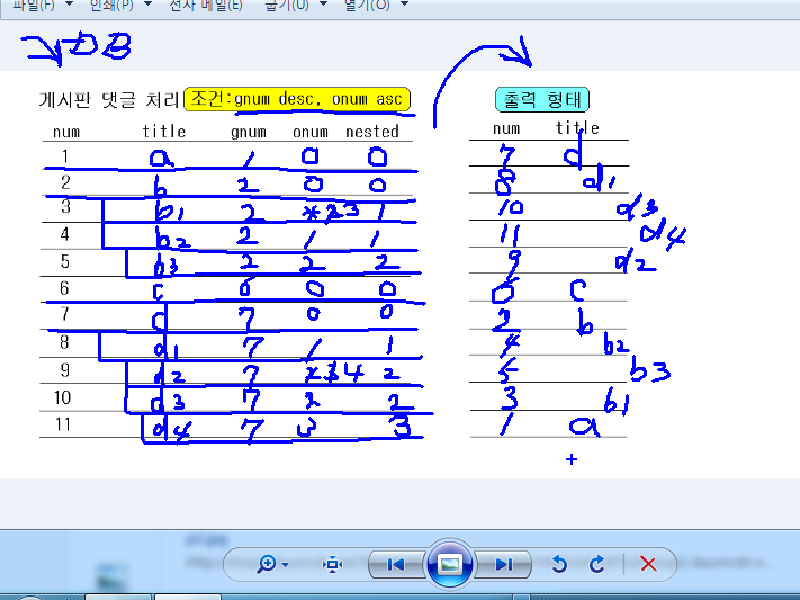 파일(F) 인쇄(P) 전자 메일(E) 굽기(U) 열기(O)
→DB
게시판 댓글 처리 조건:gnum desc, onum asc
num title gnum onum nested
1 a 1 0 0
2 b 2 0 0
3 b1 2 1
4 b2 2 1 1
5 b3 2 2 2
6 c 6 0 0
7 d 7 0 0
8 d1 7 1 1
9 d2 7 4 2
10 d3 7 2 2
11 d4 7 3 3
출력 형태
num title
7 d
8 d1
10 d3
11 d4
9 d2
6 c
2 b
4 b2
5 b3
3 b1
1 a